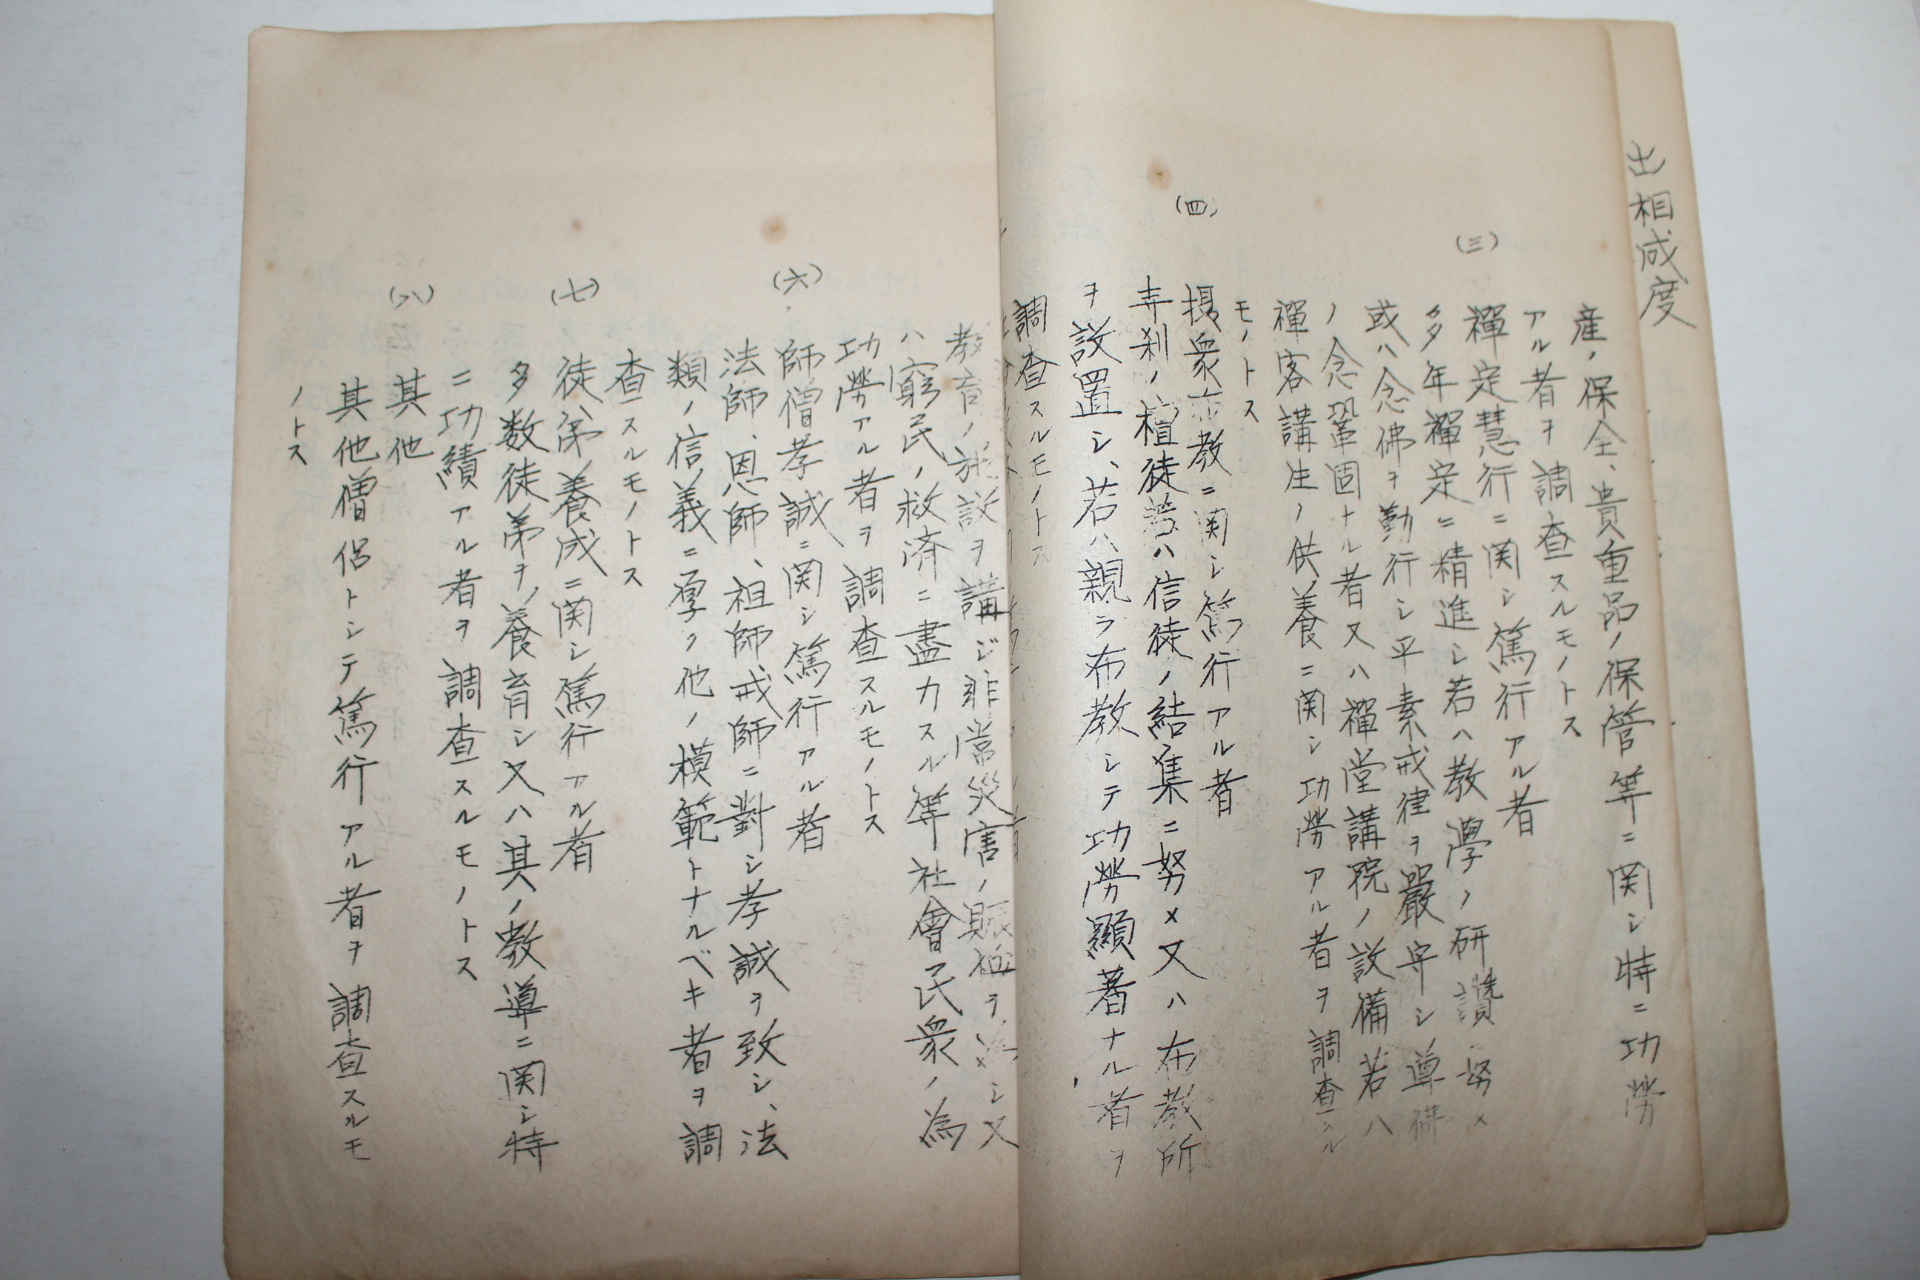 出相成度
産ノ保全、貴重品ノ保管等ニ関シ特ニ功勞
アル者ヲ調査スルモノトス
(三)
禪定慧行ニ関シ篤行アル者
多年禪定ニ精進シ若ハ教學ノ研讃ニ努メ
或ハ念佛ヲ勤行シ平素戒律ヲ嚴守シ尊佛
ノ念鞏固ナル者又ハ禪堂講院ノ設備若ハ
禪客講生ノ供養ニ関シ功勞アル者ヲ調査スル
モノトス
(四)
摂衆布教ニ関シ篤行アル者
寺刹ノ檀徒若ハ信徒ノ結集ニ努メ又ハ布教所
ヲ設置シ、若ハ親ラ布教シテ功勞顯著ナル者ヲ
調査スルモノトス
教育ノ施設ヲ講ジ非常災害ノ賑恤ヲ為シ又
ハ窮民ノ救済ニ盡力スル等社會民衆ノ為
功勞アル者ヲ調査スルモノトス
(六)
師僧孝誠ニ関シ篤行アル者
法師、恩師、祖師戒師ニ對シ孝誠ヲ致シ、法
類ノ信義ニ厚ク他ノ模範トナルベキ者ヲ調
査スルモノトス
(七)
徒弟養成ニ関シ篤行アル者
多数徒弟ヲ養育シ又ハ其ノ教導ニ関シ特
ニ功績アル者ヲ調査スルモノトス
(八)
其他
其他僧侶トシテ篤行アル者ヲ調査スルモ
ノトス